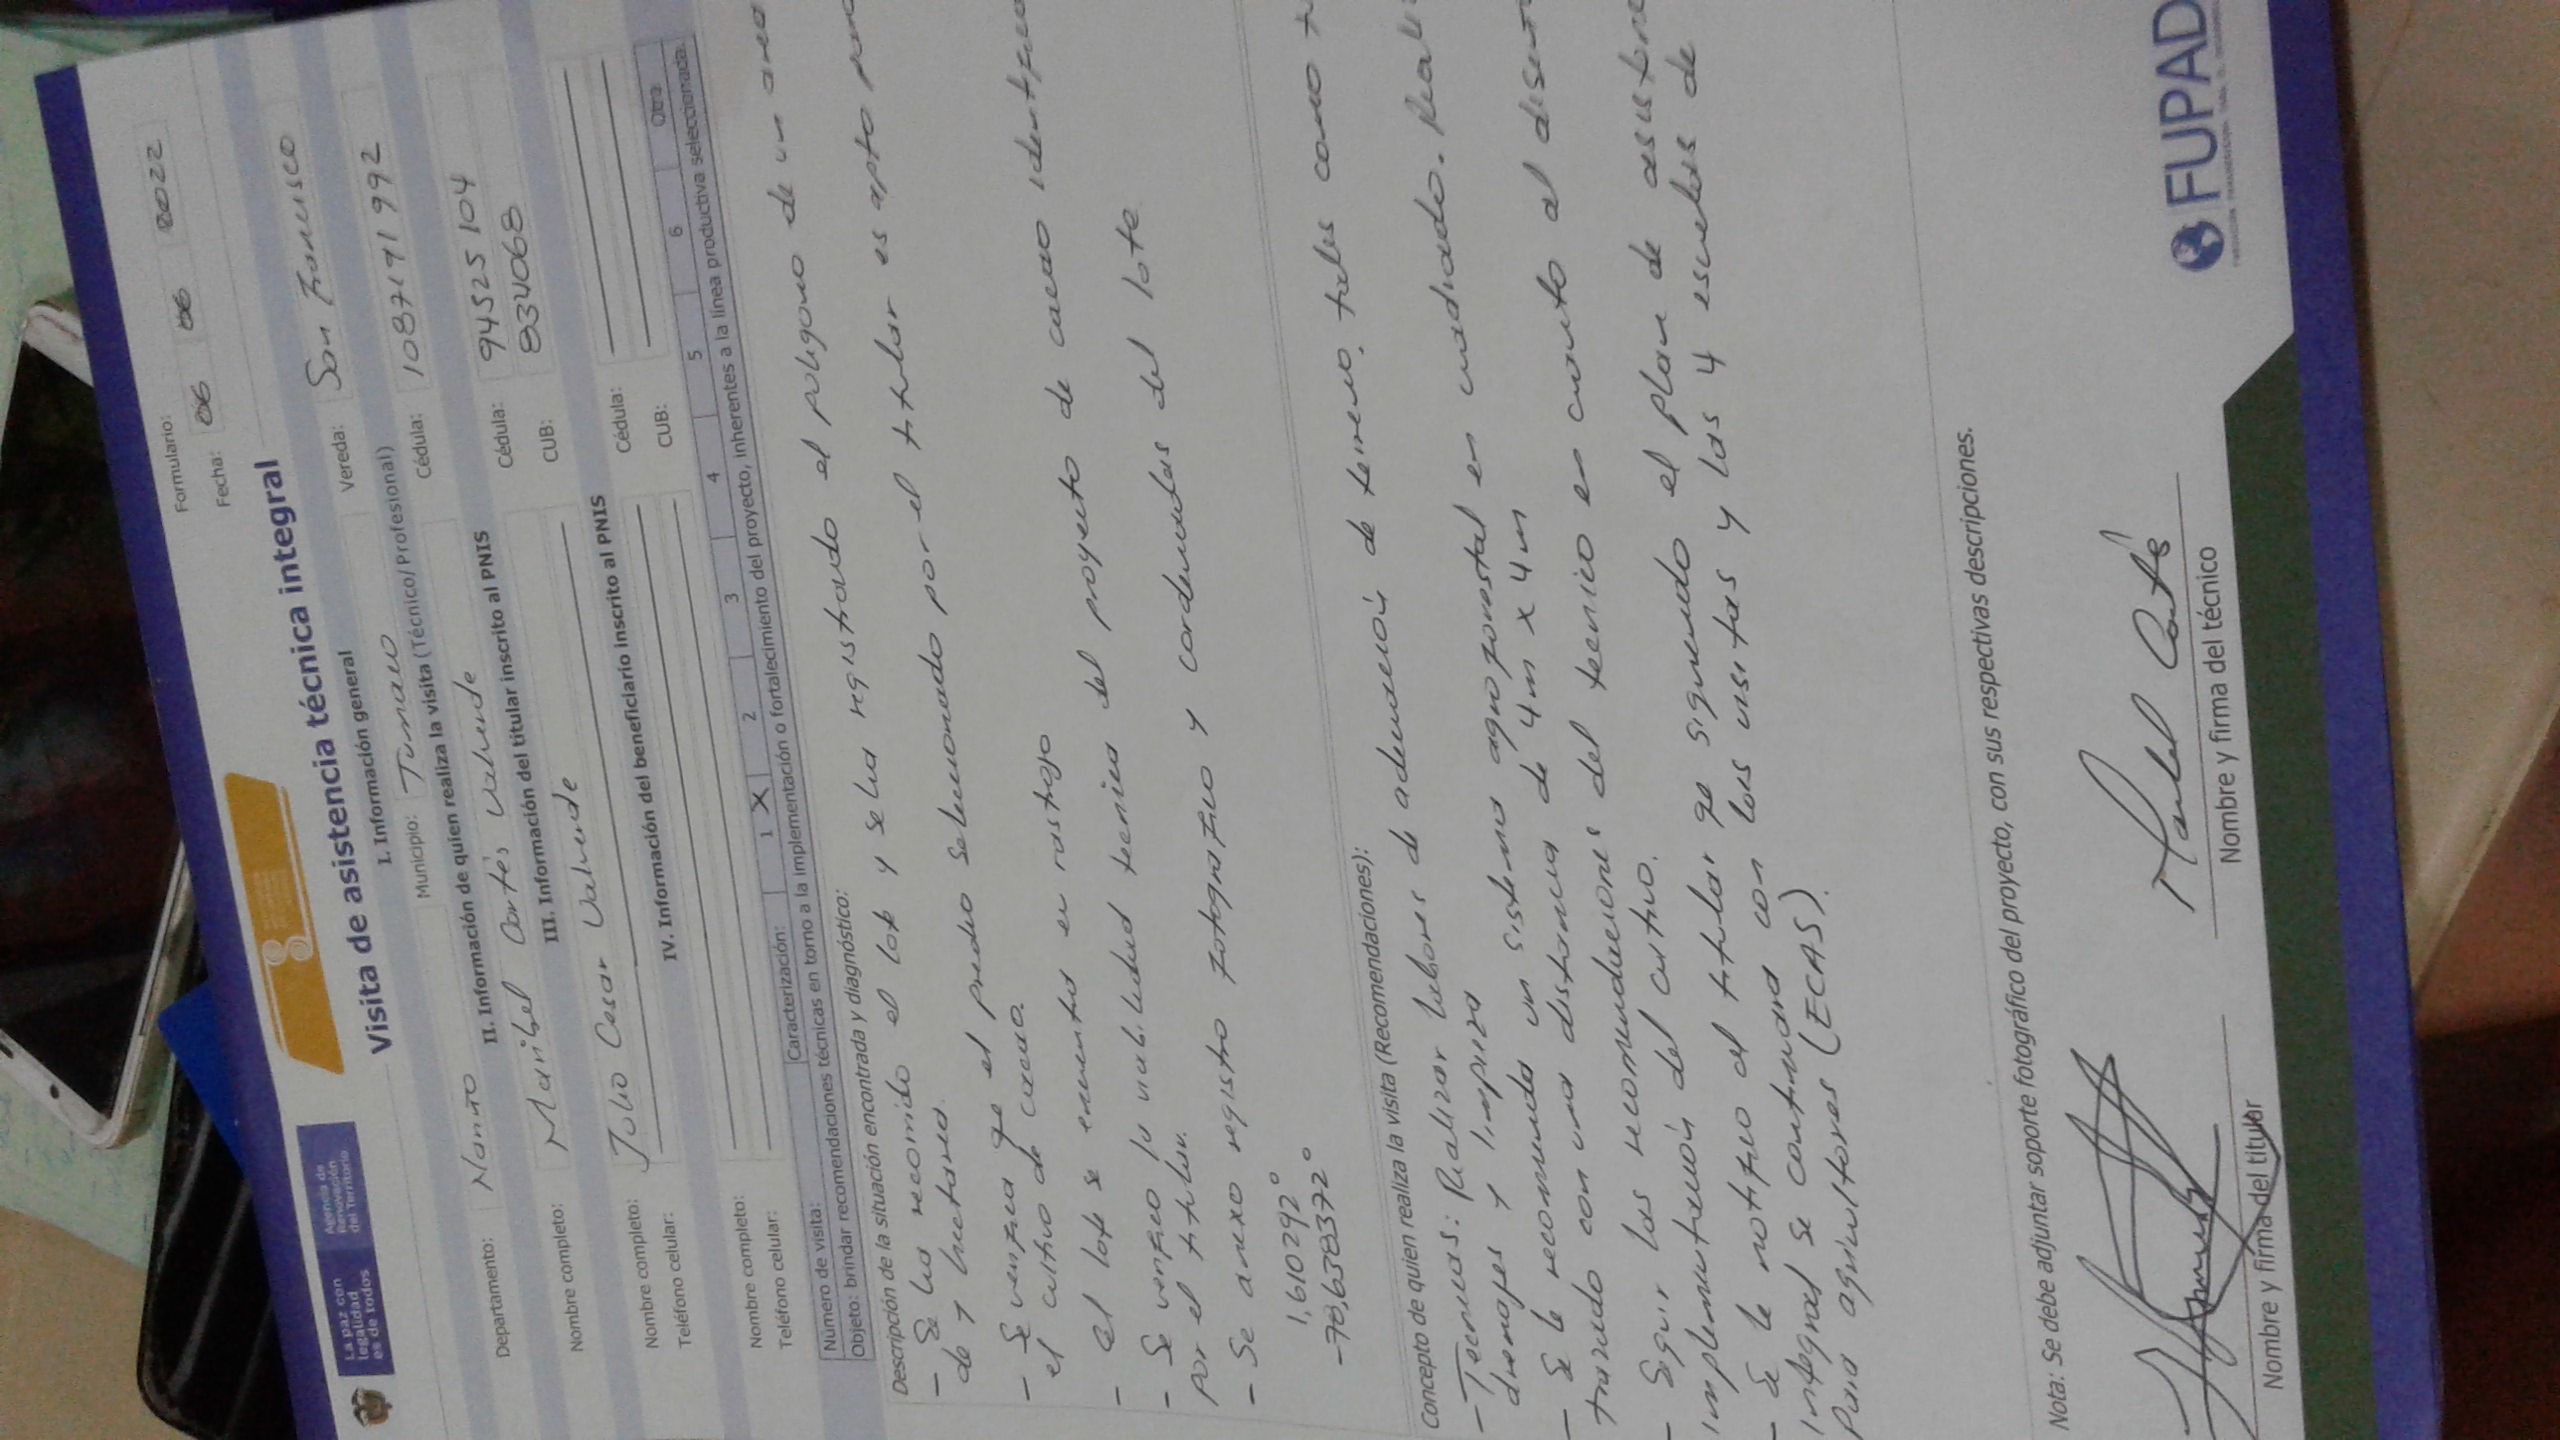 La paz con
legalidad
es de todos
Agencia de
Renovación
del Territorio
Formulario:
Fecha: 06 06 2022
Visita de asistencia técnica integral
I. Información general
Departamento: Nariño Municipio: Tumaco Vereda: San Francisco
II. Información de quien realiza la visita (Técnico/Profesional)
Nombre completo: Maribel Cortés Valverde Cédula: 1087191992
III. Información del titular inscrito al PNIS
Nombre completo: Julio Cesar Valverde Cédula: 94525104
Teléfono celular: CUB: 834068
IV. Información del beneficiario inscrito al PNIS
Nombre completo: Cédula:
Teléfono celular: CUB:
Número de visita: Caracterización: 1 X 2 3 4 5 6 Otra:
Objeto: brindar recomendaciones técnicas en torno a la implementación o fortalecimiento del proyecto, inherentes a la línea productiva seleccionada.
Descripción de la situación encontrada y diagnóstico:
- Se ha recorrido el lote y se ha registrado el poligono de un area
de 1 hectarea.
- Se verifica qe el predio seleccionado por el titular es apto para
el cultivo de cacao.
- el lote se encuentra en rastrojo
- Se verifico la viabilidad tecnica del proyecto de cacao identifica
por el titular.
- Se anexo registro fotografico y cordenadas del lote
1,610292°
-78,638372°
Concepto de quien realiza la visita (Recomendaciones):
- Tecnicas: Realizar labores de adecuación de terreno. tales como
drenajes y limpieza
- Se le recomienda un sistema agroforestal en cuadrado. Reali
trazado con una distancia de 4m x 4m
- Seguir las recomendaciones del tecnico en cuanto al
implementación del cultivo.
- Se le notifico al titular qe siguiendo el plan de asisten
integral se continuara con las visitas y las 4 escuelas de
Para agricultores (ECAS).
Nota: Se debe adjuntar soporte fotográfico del proyecto, con sus respectivas descripciones.
Maribel Cortés
Nombre y firma del titular
Nombre y firma del técnico
FUPAD